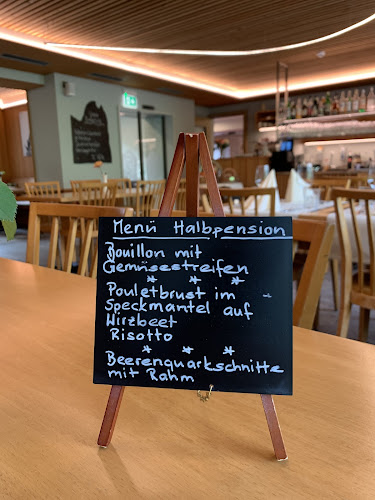 Menü Halbpension
Bouillon mit
Gemüsestreifen
* * *
Pouletbrust im -
Speckmantel auf
Wirzbeet
Risotto
* * *
Beerenquarkschnitte
mit Rahm